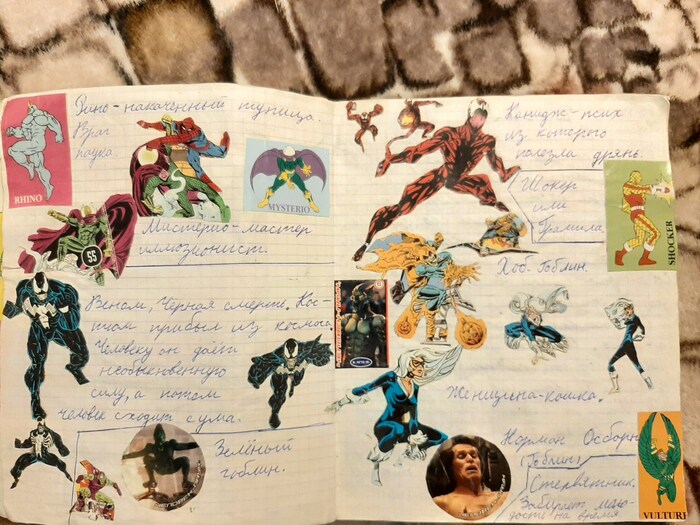 Рино-накаченный тупица.
Враг
паука.
RHINO
MYSTERIO
Мистерио-мастер
иллюзионист.
55
Веном, Чёрная смерть. Кос-
тюм прибыл из космоса.
Человеку он даёт
необыкновенную
силу, а потом
человек сходит с ума.
Зелёный
гоблин.
Карнидж-псих
из которого
полезла дрянь.
Шокер
или
Громила.
SHOCKER
Хоб-Гоблин.
Женщина-кошка.
Норман Осборн
(Гоблин)
Стервятник.
Забирает моло-
дость на время.
VULTURE